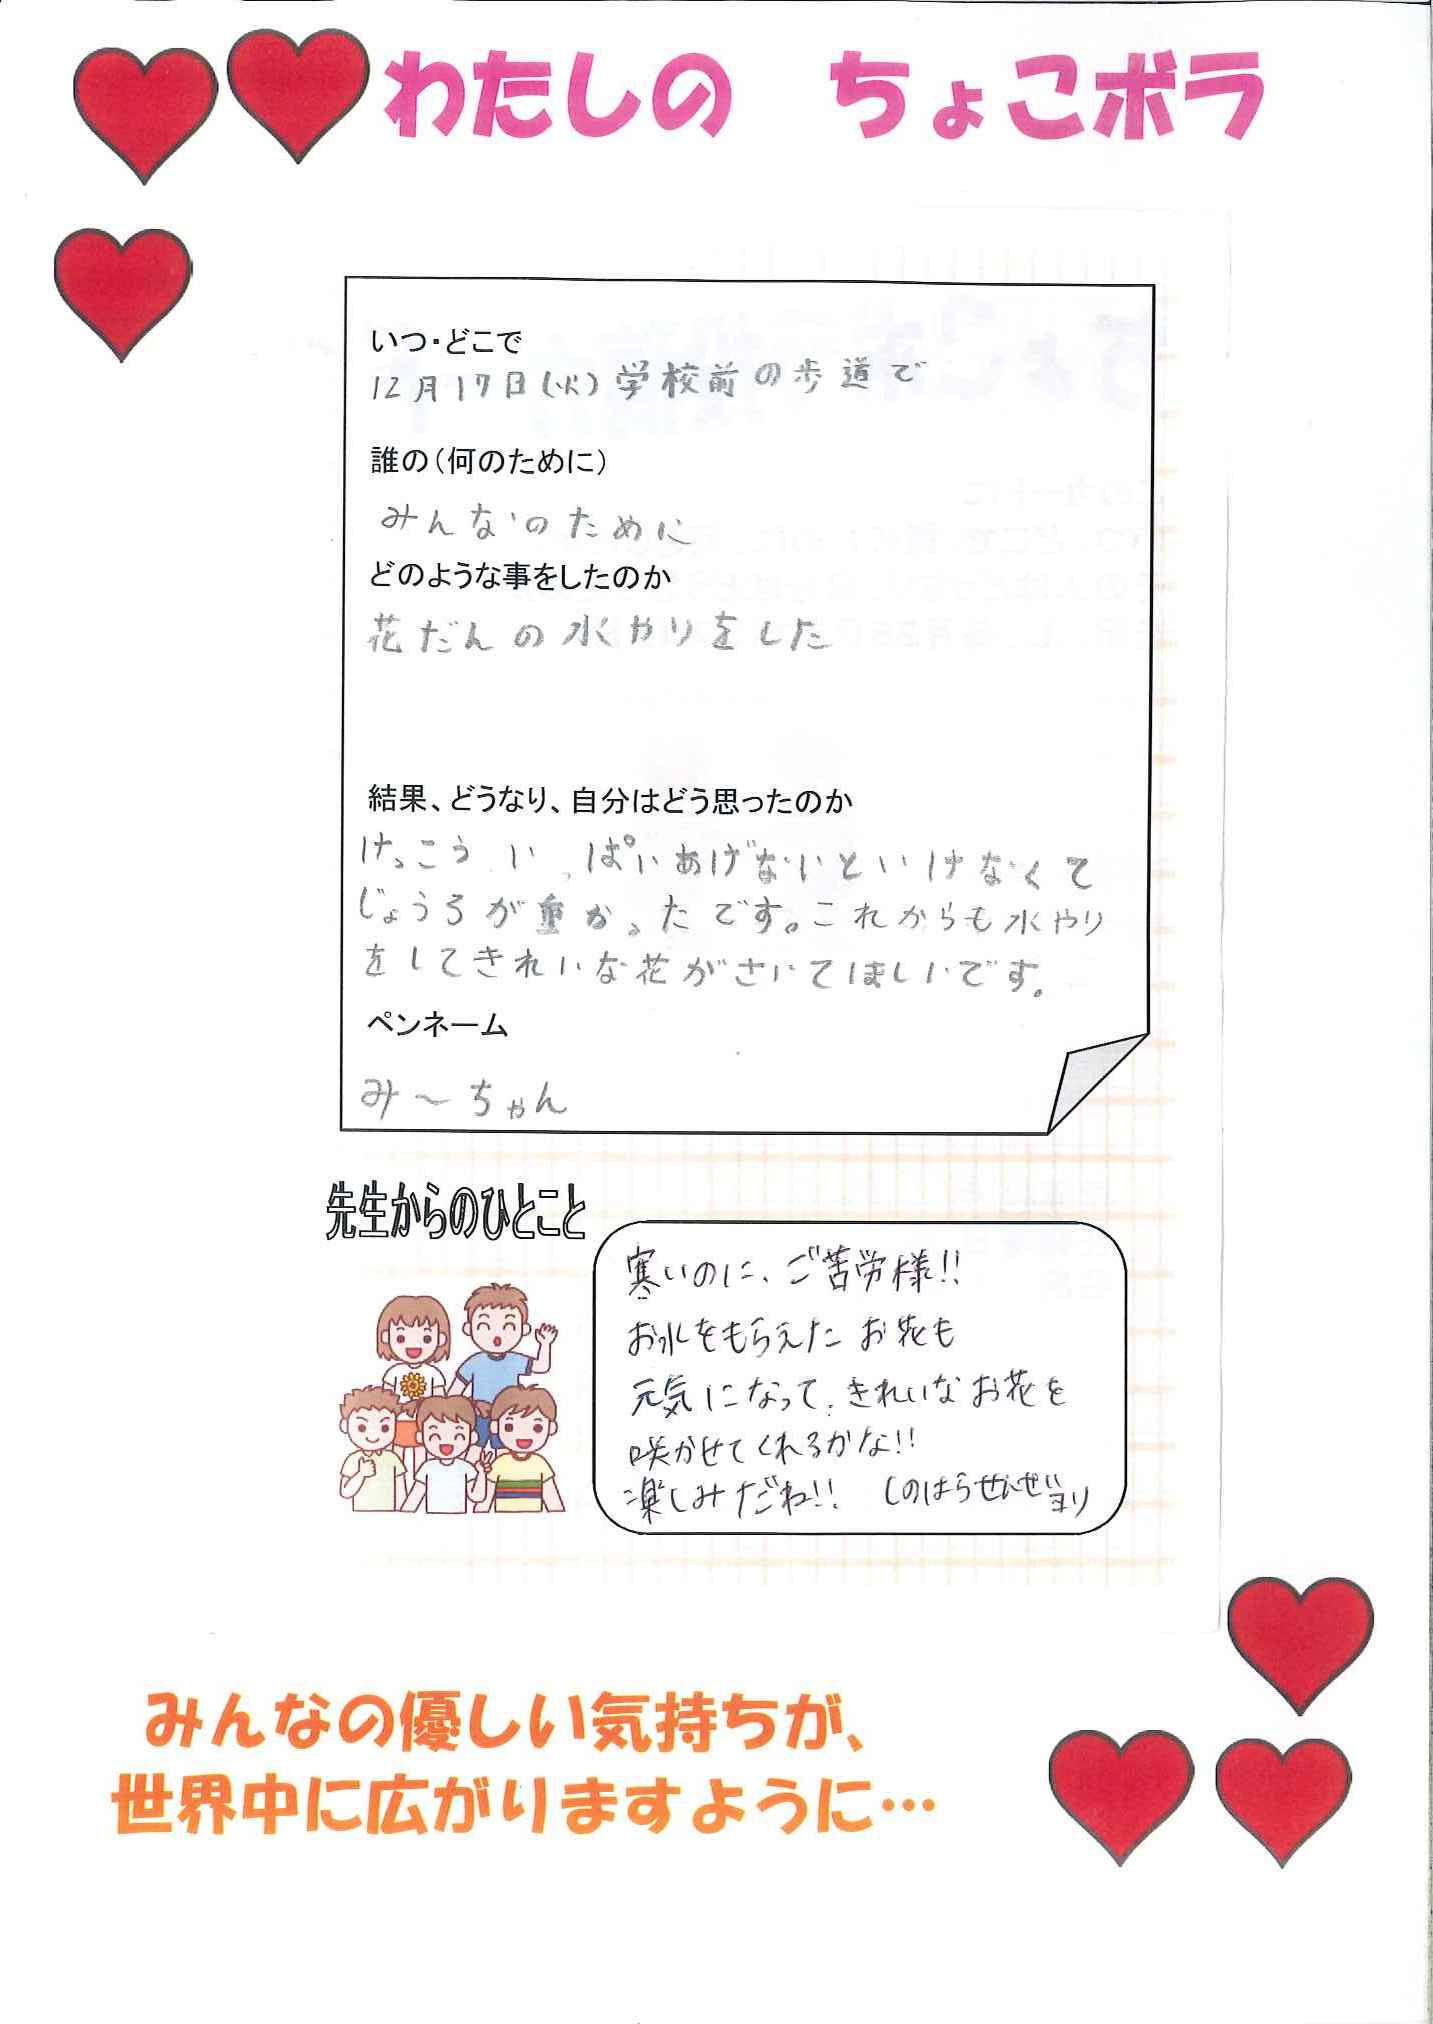 わたしの ちょこボラ
いつ・どこで
12月17日(火)学校前の歩道で
誰の(何のために)
みんなのために
どのような事をしたのか
花だんの水やりをした
結果、どうなり、自分はどう思ったのか
けっこういっぱいあげないといけなくて
じょうろが重かったです。これからも水やり
をしてきれいな花がさいてほしいです。
ペンネーム
み〜ちゃん
先生からのひとこと
寒いのに、ご苦労様!!
お水をもらえたお花も
元気になって、きれいなお花を
咲かせてくれるかな!!
楽しみだね!! しのはらせんせいヨリ
みんなの優しい気持ちが、
世界中に広がりますように…